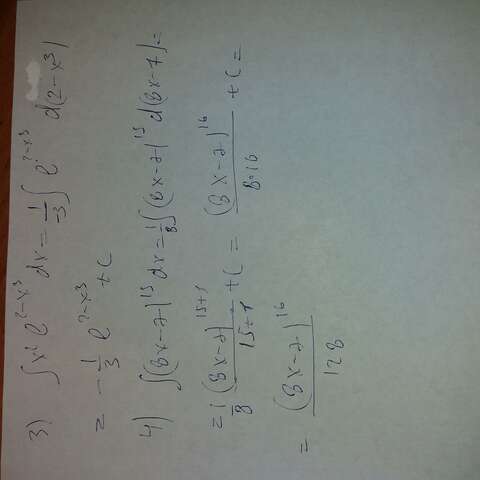 3) ∫x² e^(2-x³) dx = 1/-3 ∫ e^(2-x³) d(2-x³)
= -1/3 e^(2-x³) + C
4) ∫(8x-7)^15 dx = 1/8 ∫(8x-7)^15 d(8x-7) =
= 1/8 (8x-7)^(15+1)/(15+1) + C = (8x-7)^16/(8·16) + C =
= (8x-7)^16/128